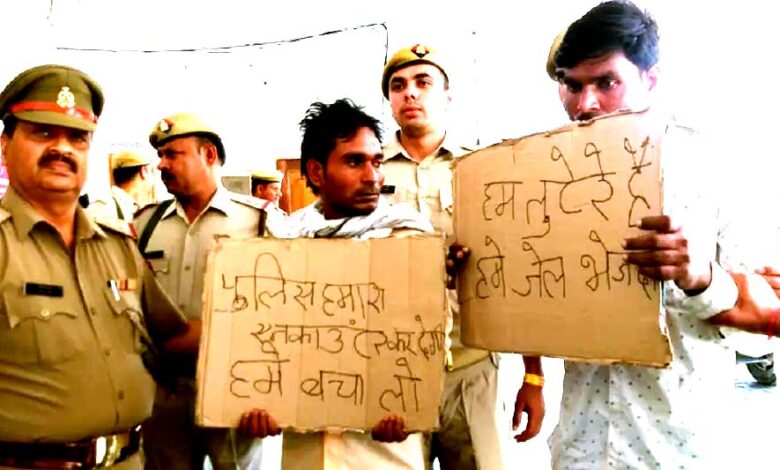 पुलिस हमारा
इनकाउंटर कर देगी
हमे बचा लो
हम लुटेरे है
हमे जेल भेज